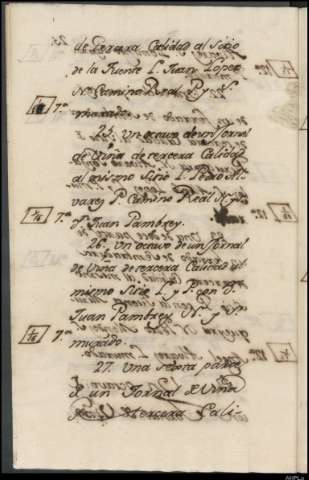 de tercera Calidad al Sitio
de la Fuente L. Juan Lopez
N. Camino Real P. y S.
25. Un octavo de un Jornal
de Viña de tercera Calidad
al mismo Sitio L. Pedro Al
varez P. Camino Real N. y
S. Juan Pambrey.
26. Un octavo de un Jornal
de Viña de tercera Calidad al
mismo Sitio L. y P. con
Juan Pambrey N. y S.
murado.
27. Una sesta parte
de un Jornal de Viña
de tercera Cali-
AHPLe